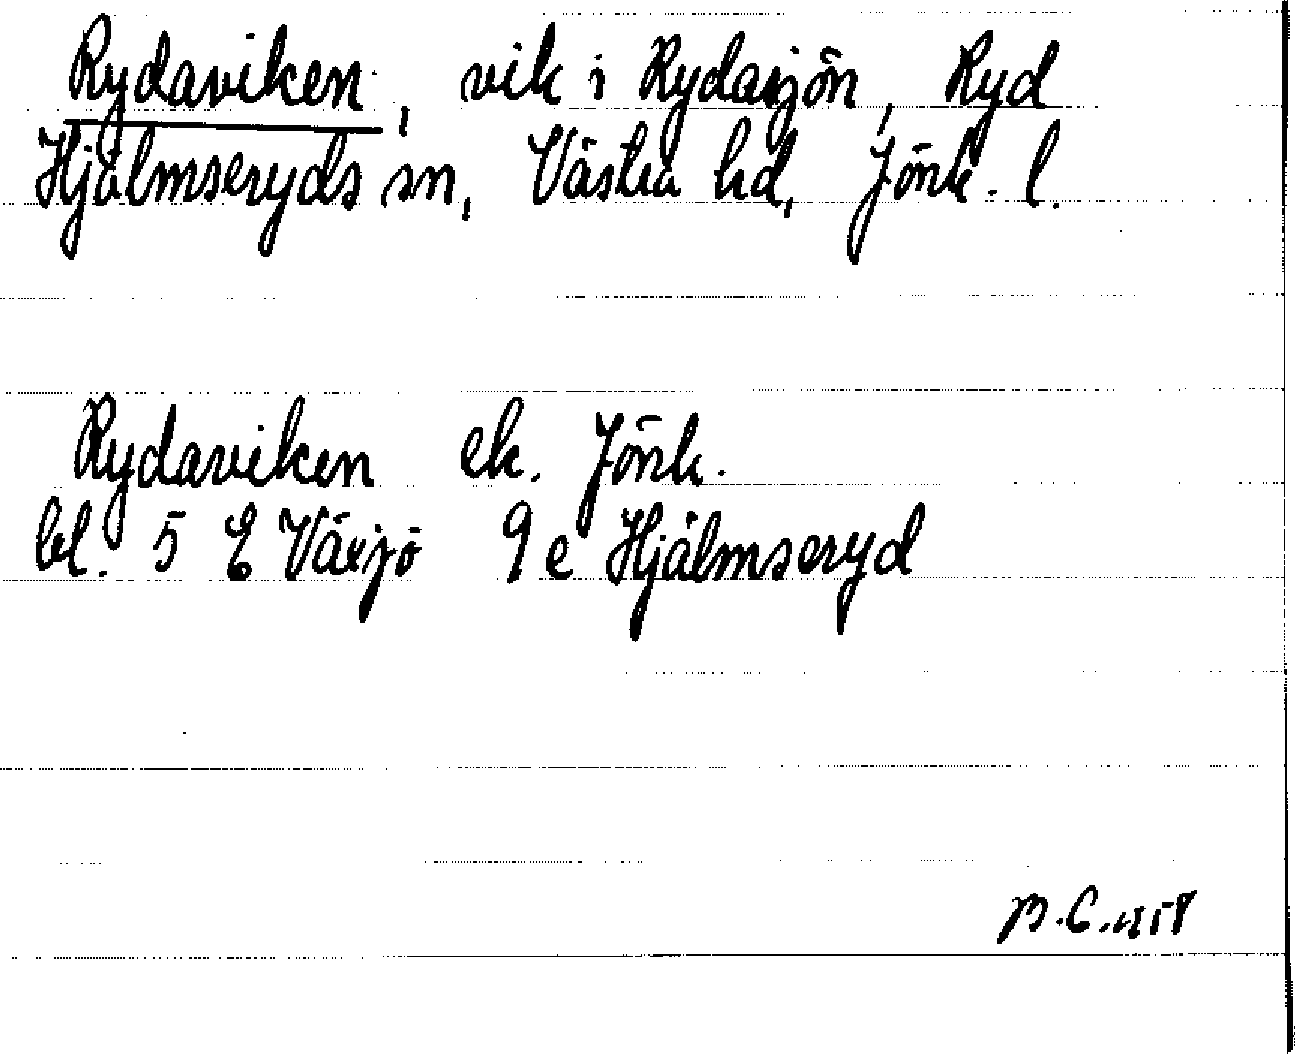 Rydaviken, vik i Rydasjön, Ryd
Hjälmseryds sn, Västra hd, Jönk. l.
Rydaviken ek. Jönk.
bl. 5 E Växjö 9 e Hjälmseryd